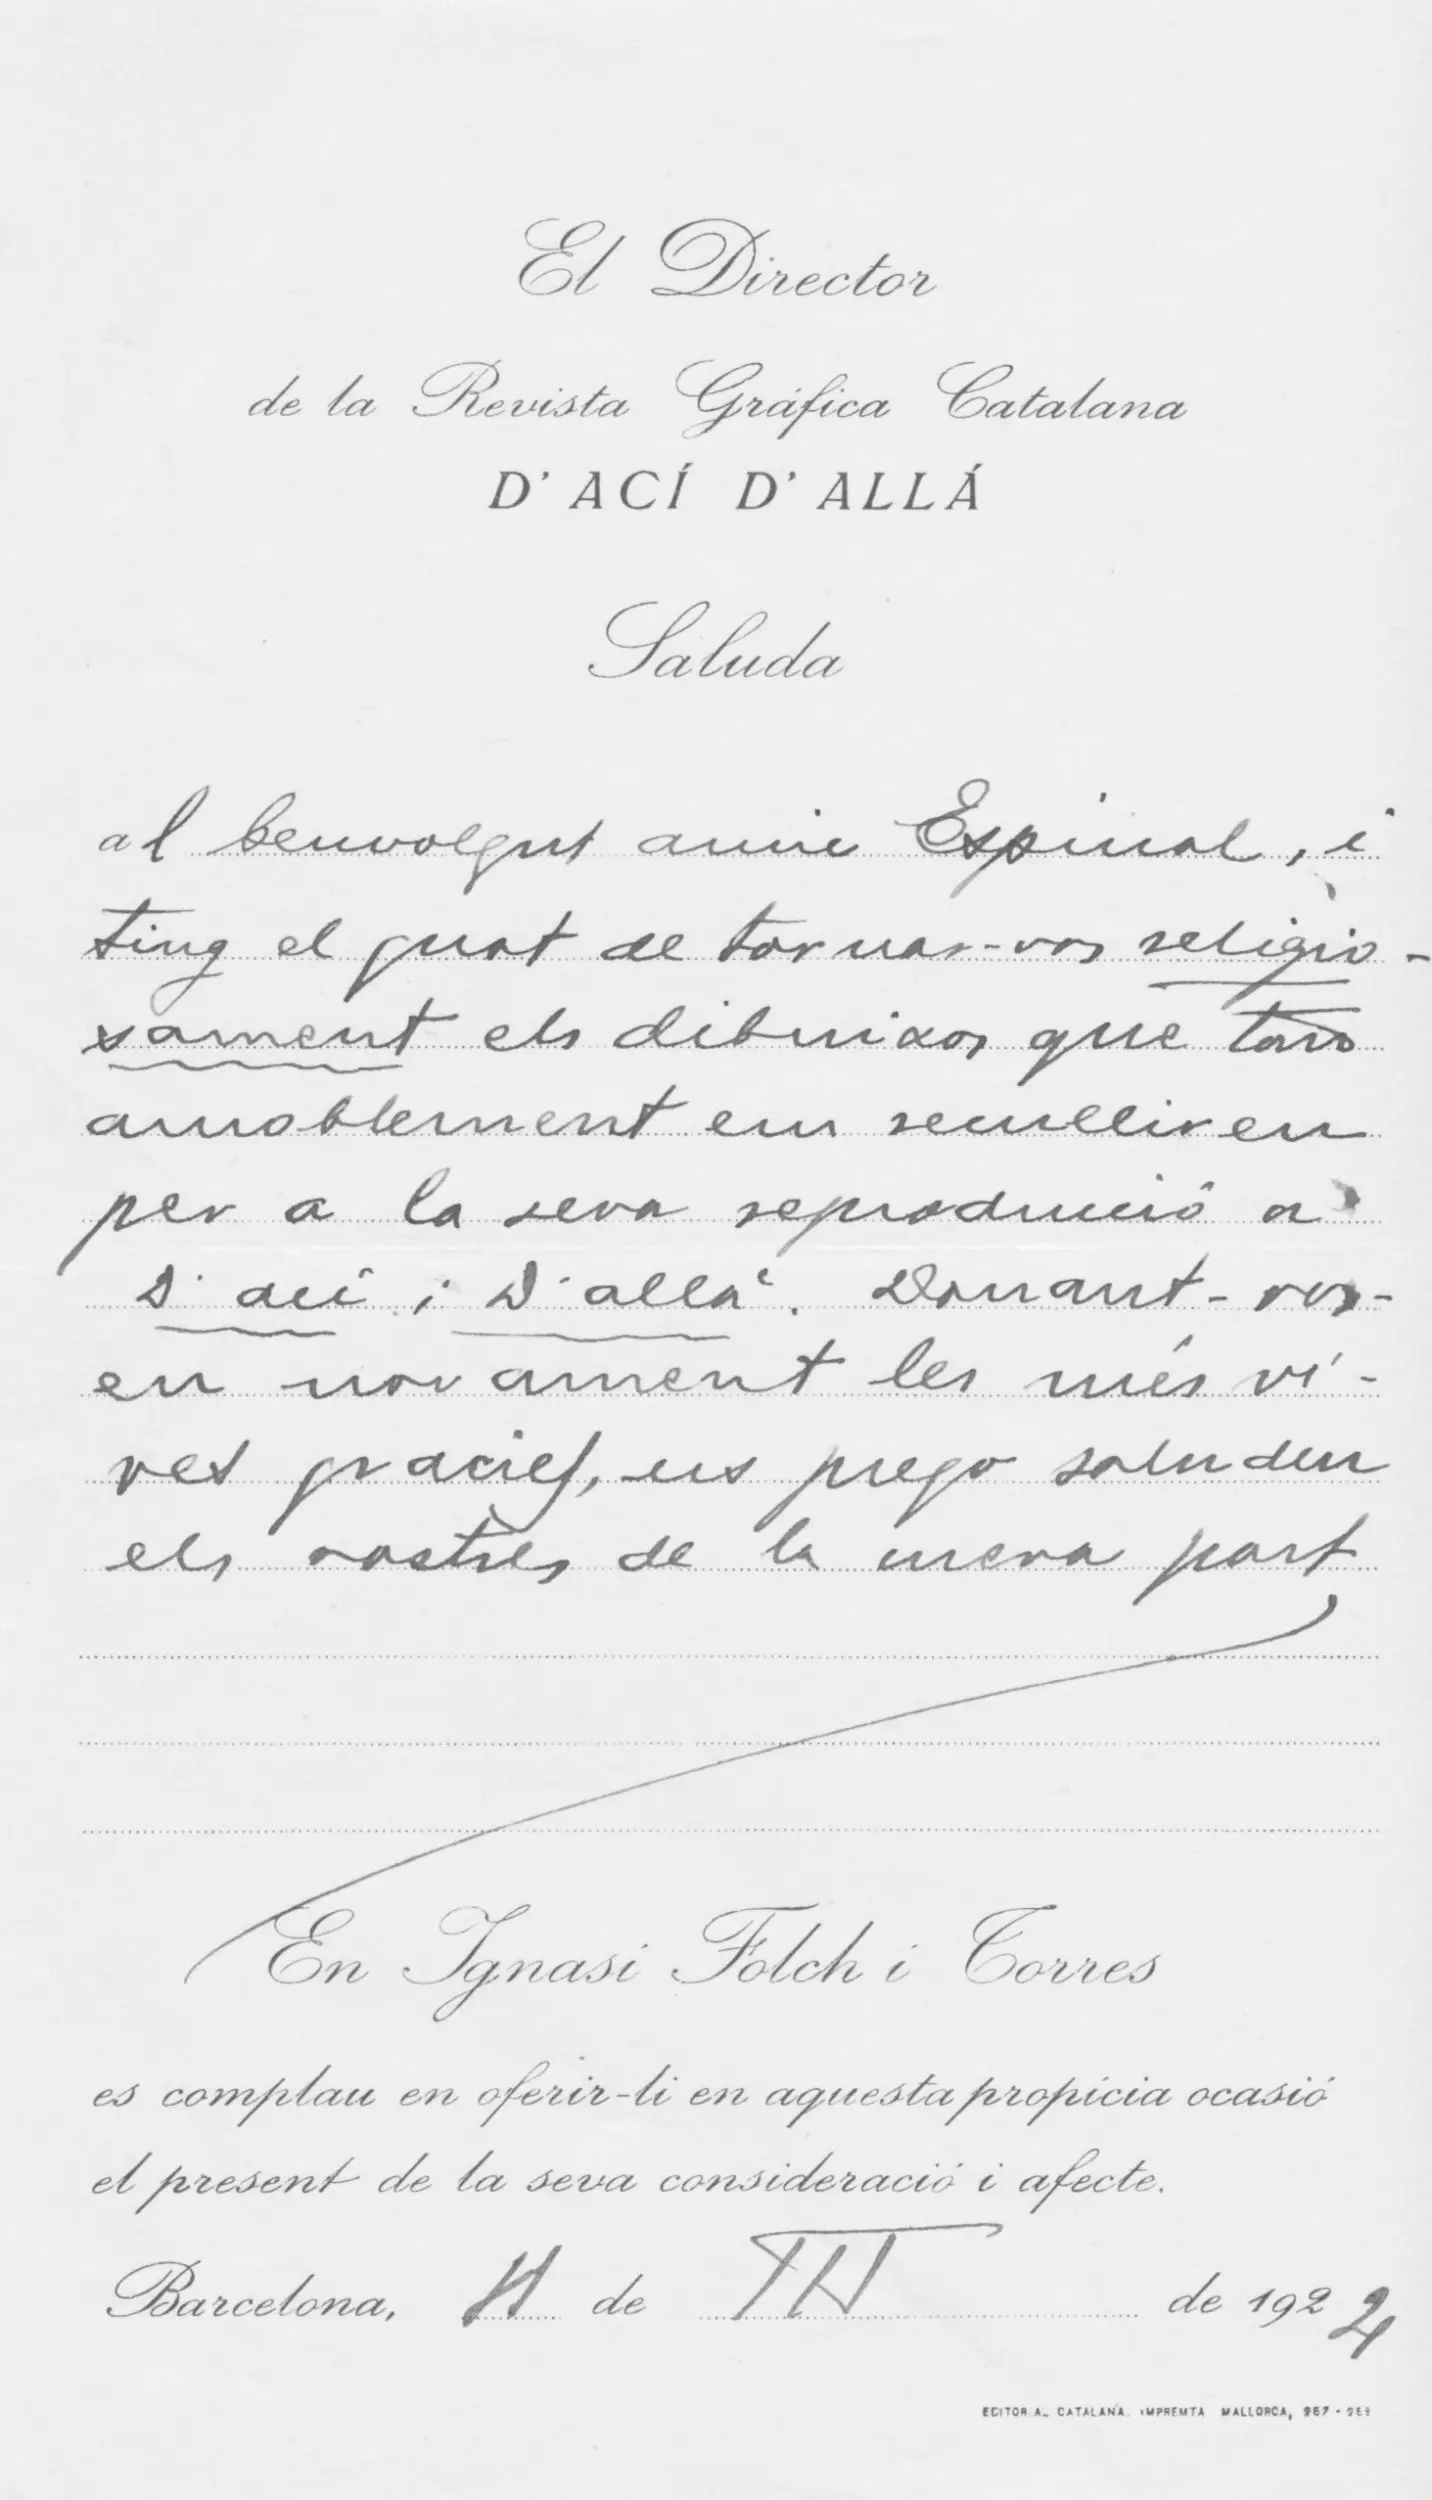 El Director
de la Revista Gráfica Catalana
D'ACÍ D'ALLÁ
Saluda
al benvolgut amic Espinal, i
ting el gust de tornar-vos religio-
sament els dibuixos que tan
amablement em
per a la seva reproducció a
D'ací i D'allà. Donant-vos-
en novament les més vi-
ves gracies, us prego saluden
els vostres de la meva part
En Ignasi Folch i Torres
es complau en oferir-li en aquesta propícia ocasió
el present de la seva consideració i afecte.
Barcelona, de de 192
EDITORIAL CATALANA. IMPREMTA MALLORCA, 257 - 259